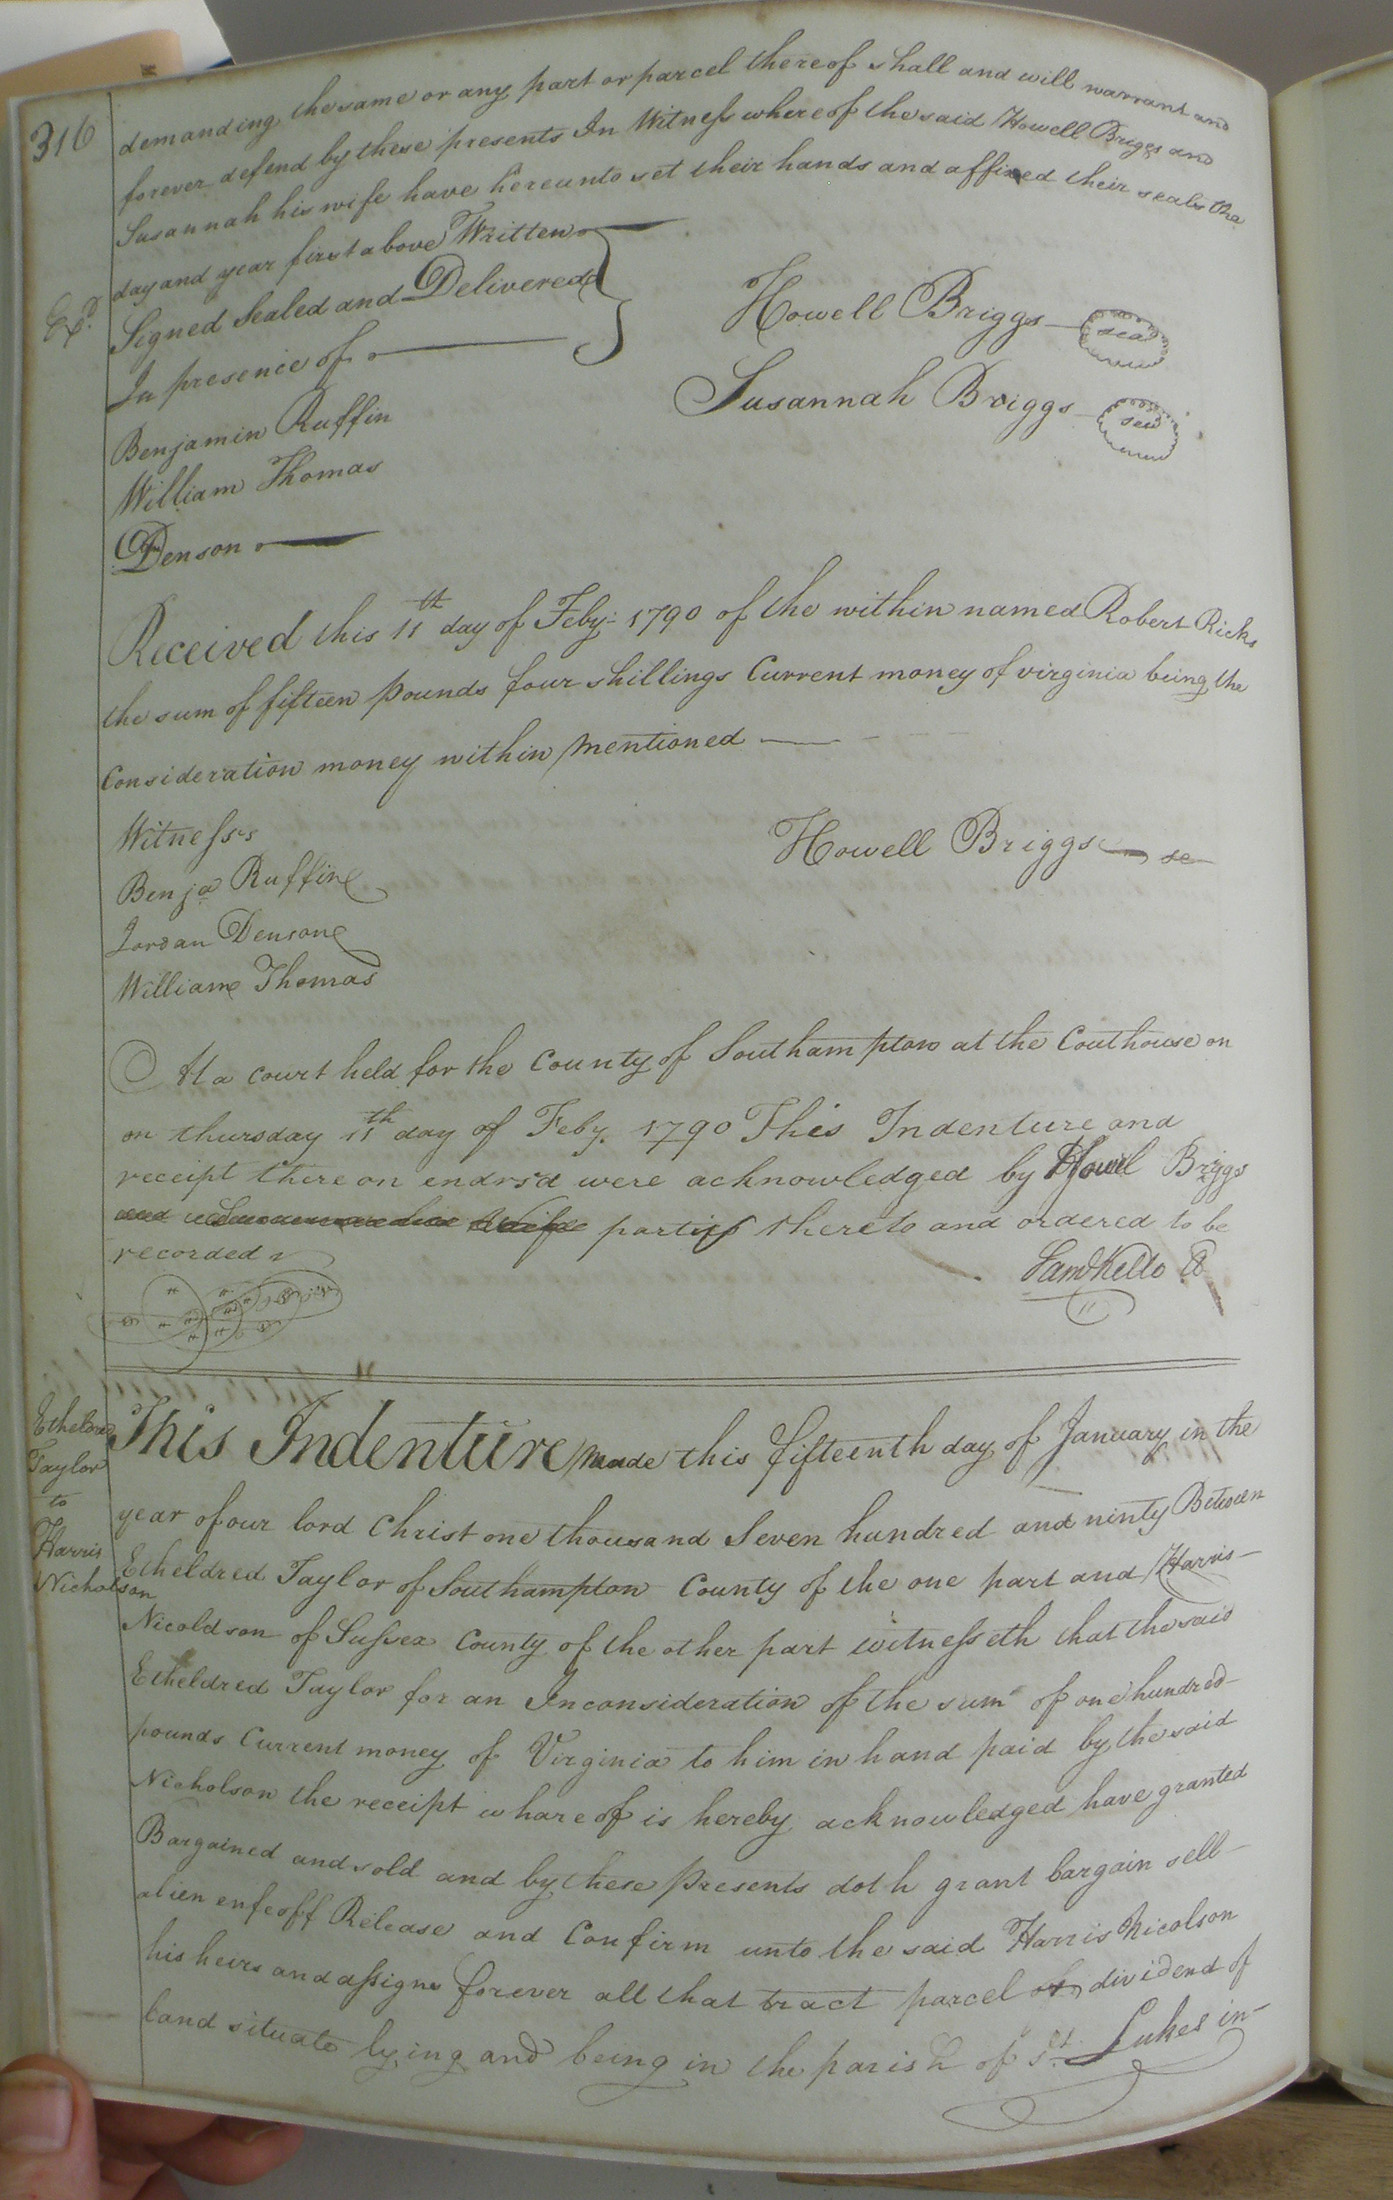 316
demanding the same or any part or parcel thereof shall and will warrant and
forever defend by these presents In Witness whereof the said Howell Briggs and
Susannah his wife have hereunto set their hands and affixed their seals the
day and year first above Written
Exd.
Signed Sealed and Delivered
In presence of
Howell Briggs seal
Susannah Briggs seal
Benjamin Ruffin
William Thomas
Denson
Received this 11th day of Feby. 1790 of the within named Robert Ricks
the sum of fifteen pounds four shillings Current money of virginia being the
Consideration money within mentioned
Witness
Howell Briggs
Benja Ruffin
Jordan Denson
William Thomas
At a court held for the County of Southampton at the Couthouse on
on thursday 11th day of Feby. 1790 This Indenture and
receipt there on endrsd were acknowledged by Howel Briggs
parties thereto and ordered to be
recorded
Saml Kello
Etheldred
Taylor
to
Harris
Nicholson
This Indenture Made this fifteenth day of January in the
year of our lord Christ one thousand Seven hundred and ninty Between
Etheldred Taylor of Southampton County of the one part and Harris
Nicoldson of Sussex County of the other part witnesseth that the said
Etheldred Taylor for an Inconsideration of the sum of one hundred
pounds Current money of Virginia to him in hand paid by the said
Nicholson the receipt whareof is hereby acknowledged have granted
Bargained and sold and by these presents doth grant bargain sell
alien enfeoff Release and Confirm unto the said Harris Nicolson
his heirs and assigns forever all that tract parcel or dividend of
land situate lying and being in the parish of St. Lukes in